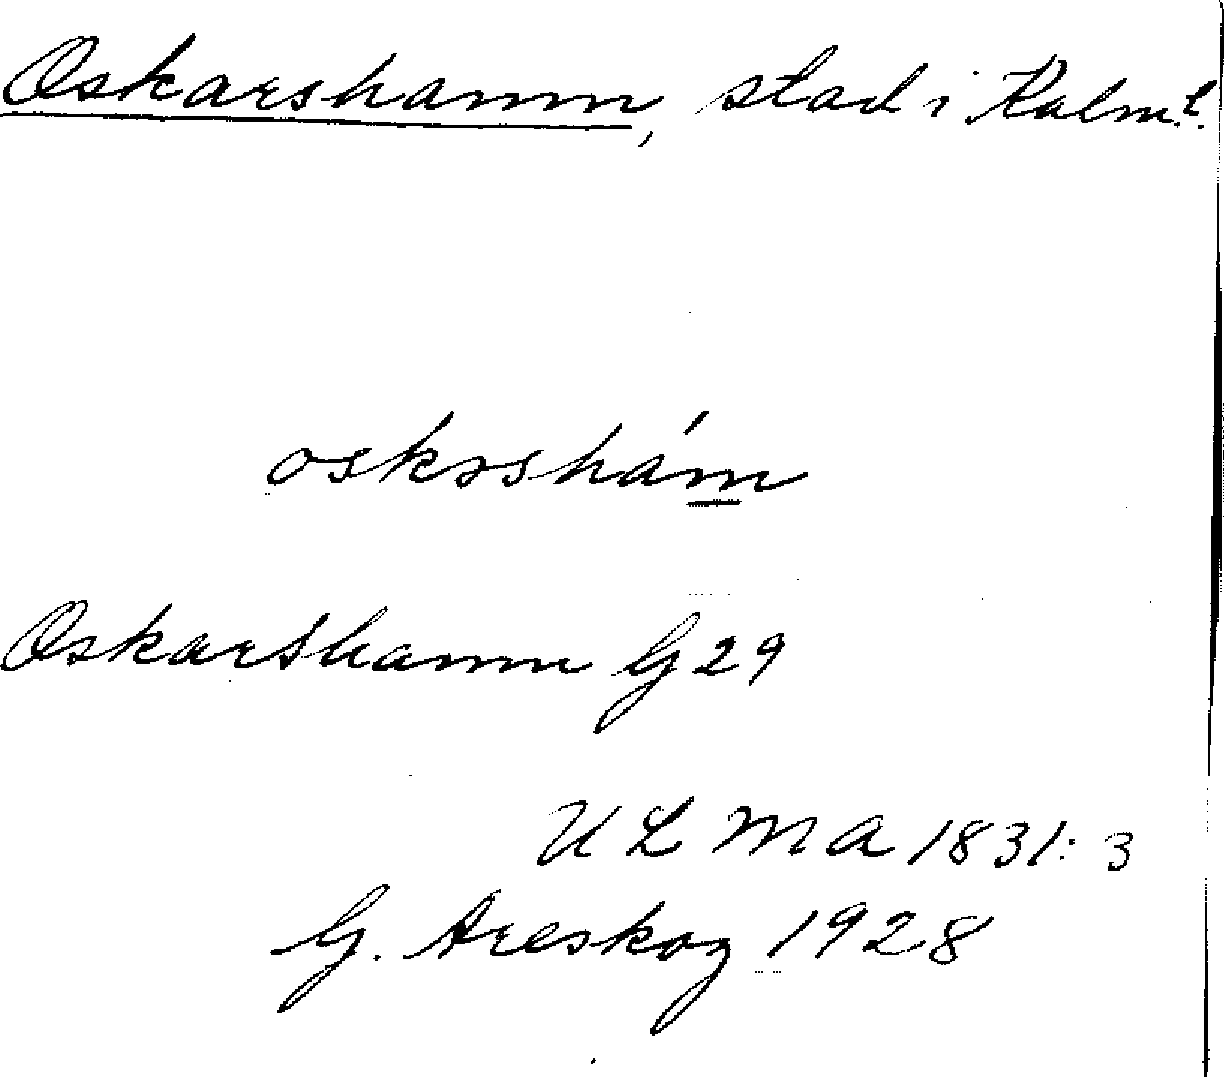 Oskarshamn, stad i Kalm. l.
oskəshám
Oskarshamn G 29
ULMA 1831: 3
G. Areskog 1928